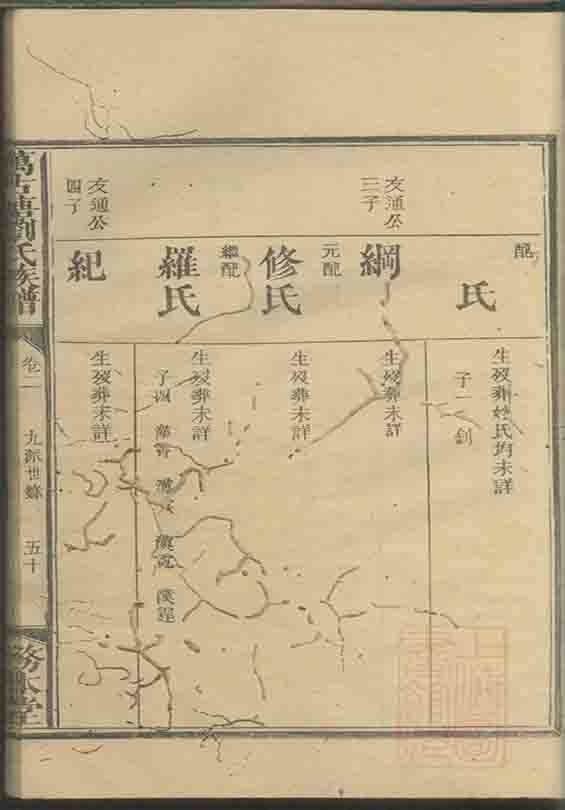 配
氏
生歿葬姓氏均未詳
子一 釗
文通公
三子
綱
生歿葬未詳
元配
修氏
生歿葬未詳
繼配
羅氏
生歿葬未詳
子四
文通公
四子
紀
生歿葬未詳
萬古塘劉氏族譜
卷一
九派世錄
五十
務本堂